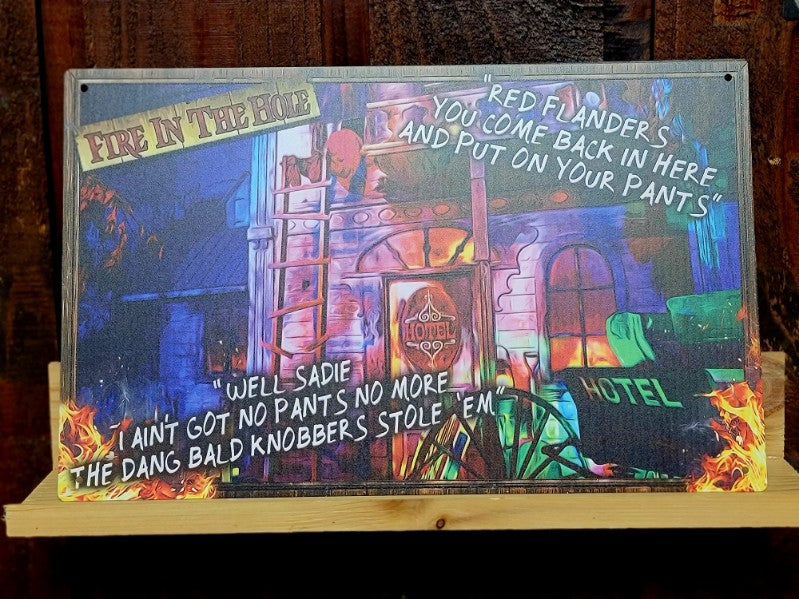 FIRE IN THE HOLE
"RED FLANDERS
YOU COME BACK IN HERE
AND PUT ON YOUR PANTS"
HOTEL
HOTEL
"WELL SADIE
I AIN'T GOT NO PANTS NO MORE
THE DANG BALD KNOBBERS STOLE 'EM"